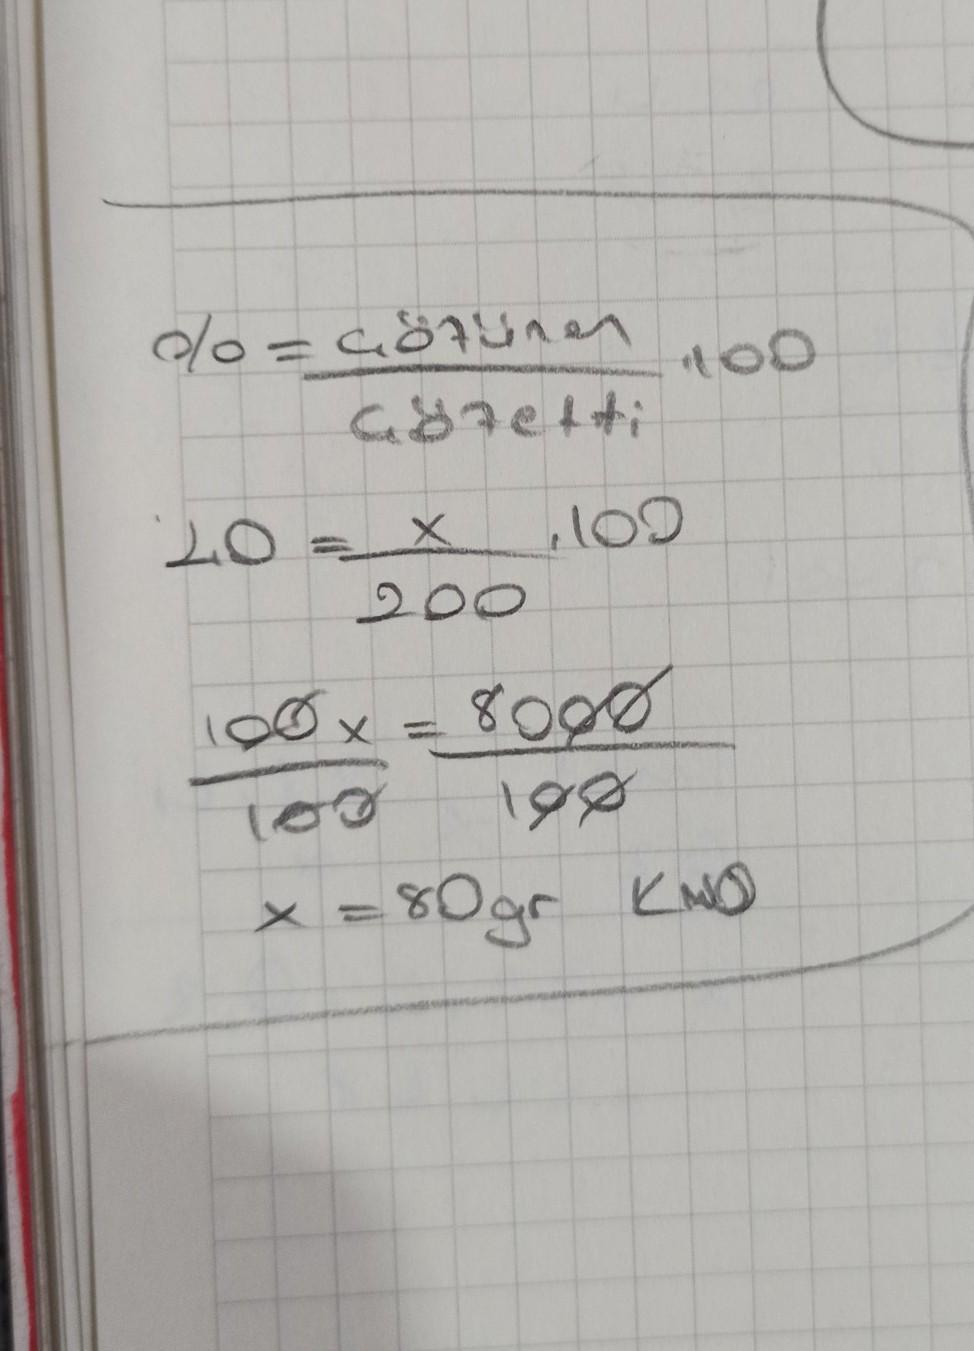 % = Çözünen / Çözelti .100
40 = x / 200 .100
100x / 100 = 8000 / 100
x = 80gr KNO